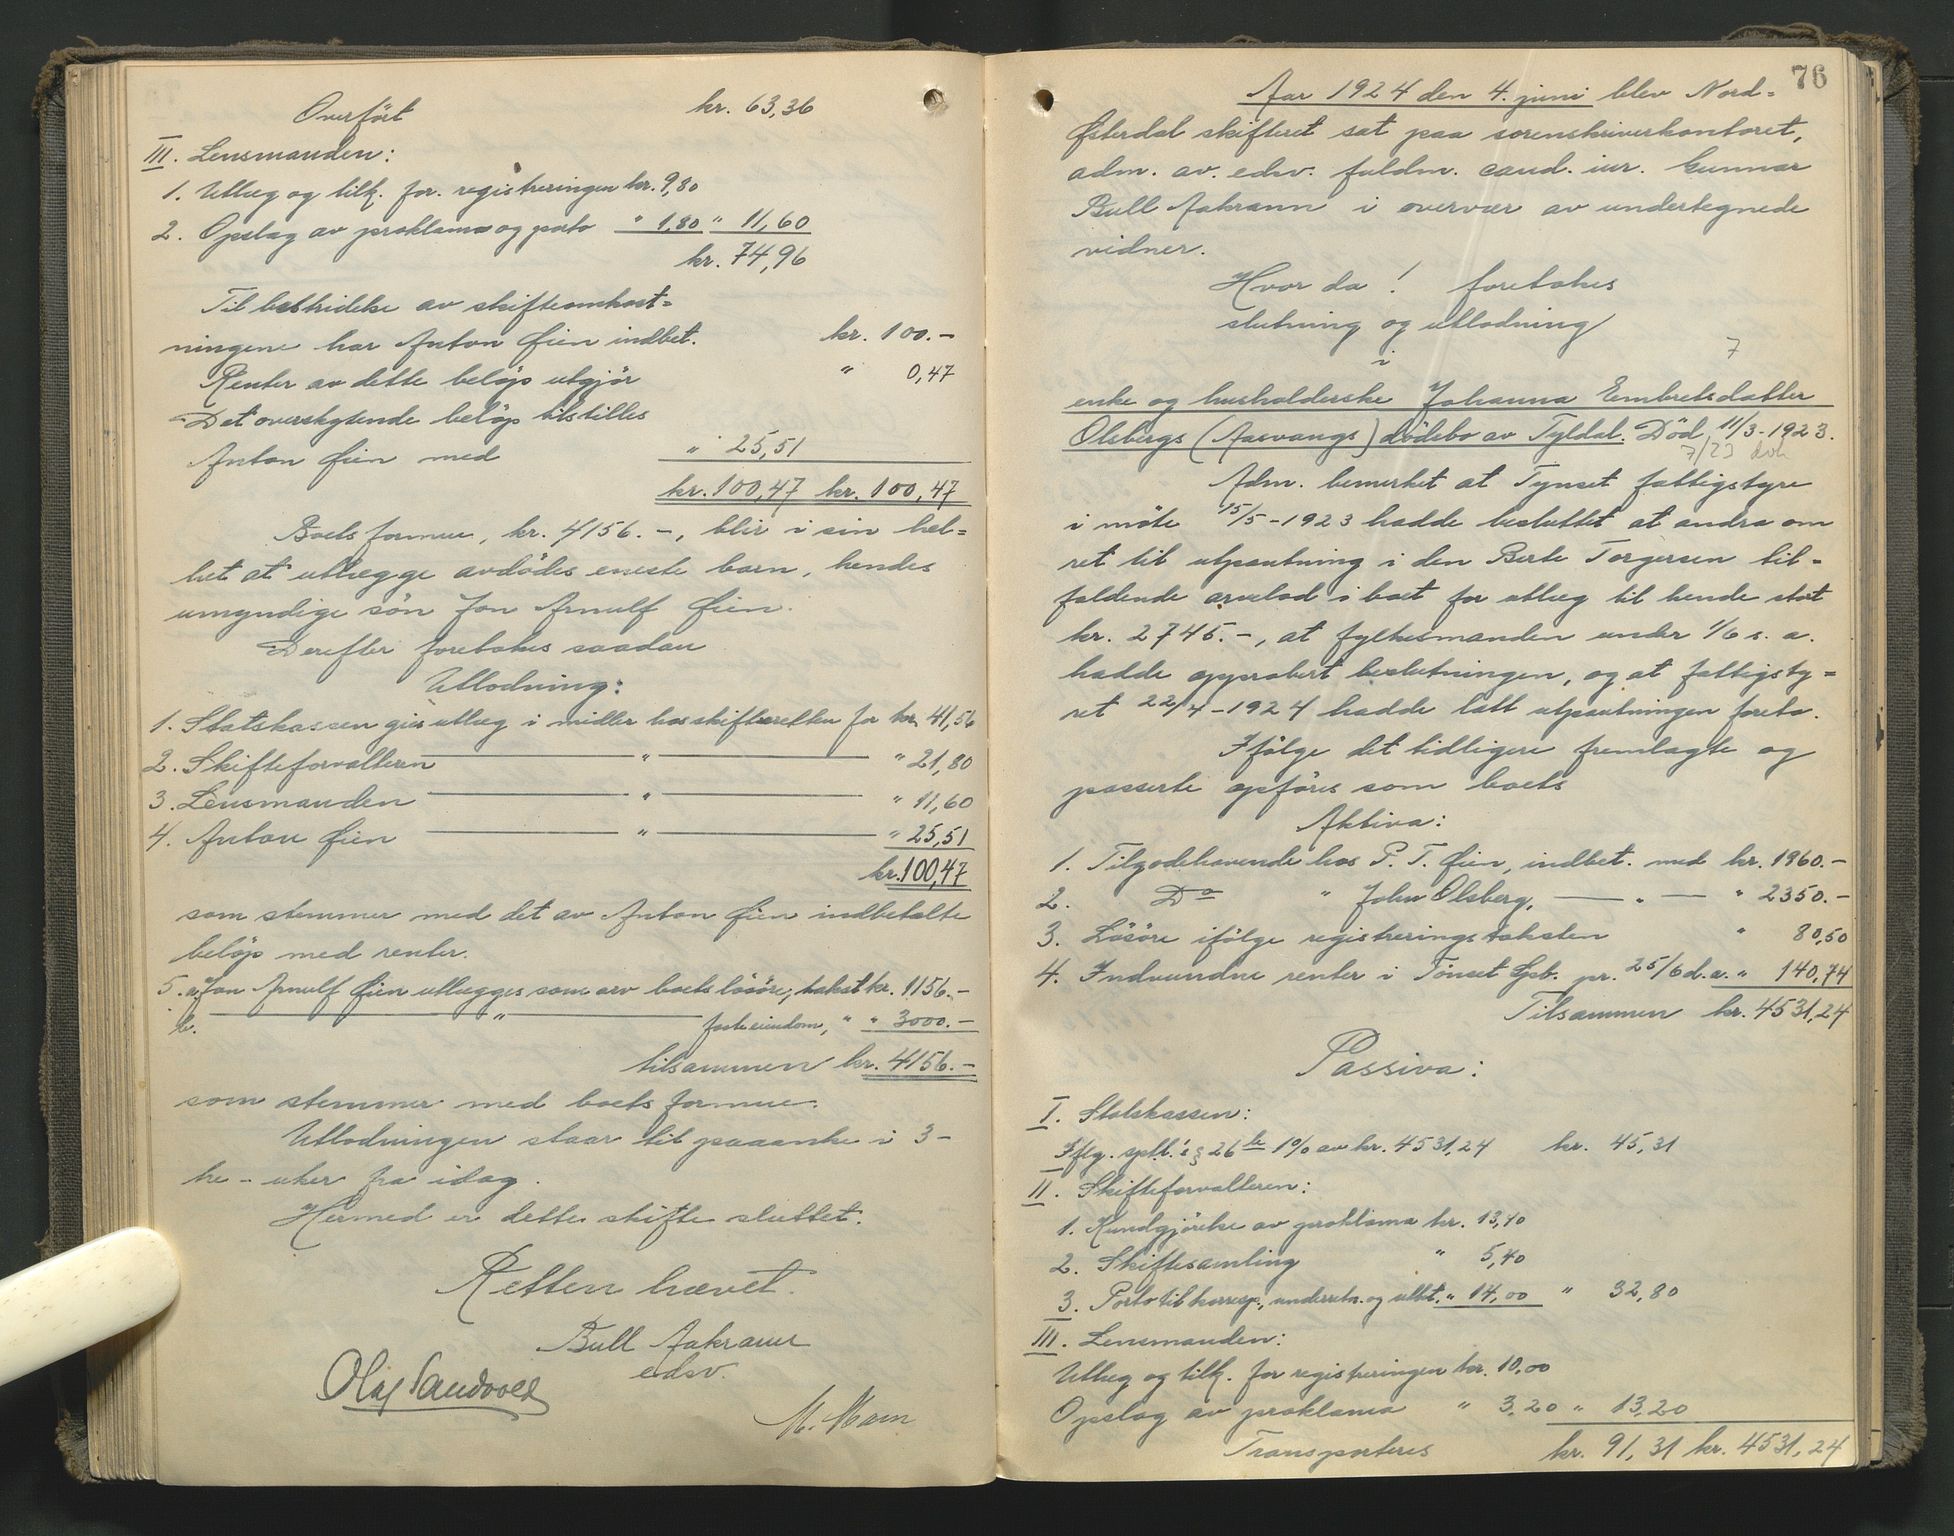 Overført kr. 63,36
III. Lensmanden:
1. Utlæg og tilk. for registreringen kr. 9,80
2. Opslag av proklama og porto " 1,80 " 11,60
kr. 74,96
Til bestridelse av skifteomkost=
ningene har Anton Øien indbet. kr. 100.-
Renter av dette beløp utgjør " 0,47
Det overskytende beløp tilstilles
Anton Øien med " 25,51
kr. 100,47 kr. 100,47
Boets formue, kr. 4156.-, blir i sin hel=
het at utlægge avdødes eneste barn, hendes
umyndige søn Jon Arnulf Øien.
Derefter foretokes saadan
Utlodning:
1. Statskassen gies utlæg i midler hos skifteretten for kr. 41,56
2. Skifteforvalteren " " 21,80
3. Lensmanden " " 11,60
4. Anton Øien " " 25,51
kr. 100,47
som stemmer med det av Anton Øien indbetalte
beløp med renter.
5. a. Jon Arnulf Øien utlægges som arv boets løsøre, takst kr. 1156.-
b. " faste eiendom, " " 3000.-
tilsammen kr. 4156.-
som stemmer med boets formue.
Utlodningen staar til paaanke i 3-
tre - uker fra idag.
Hermed er dette skifte sluttet.
Retten hævet.
Bull Aakrann
edsv.
Olaf Sandvold
M. Moen
76
Aar 1924 den 4. juni blev Nord=
Østerdal skifteret sat paa sorenskriverkontoret,
adm. av. edsv. fuldm. cand. iur. Gunnar
Bull Aakrann i overvær av undertegnede
vidner.
Hvor da! foretokes
slutning og utlodning
i
7
enke og husholderske Johanna Embretsdatter
Olsbergs (Aasvangs) dødsbo av Tyldal. Død 11/3-1923.
7/23 dok
Adm. bemerket at Tynset fattigstyre
i møte 15/5-1923 hadde besluttet at andra om
ret til utpantning i den Berte Torgersen til=
faldende arvelod i boet for utlæg til hende stort
kr. 2745.-, at fylkesmanden under 1/6 s. a.
hadde approbert beslutningen, og at fattigsty=
ret 22/4-1924 hadde latt utpantningen foreta.
Ifølge det tidligere fremlagte og
passerte opføres som boets
Aktiva:
1. Tilgodehavende hos P. T. Øien, indbet. med kr. 1960.-
2. Do " John Olsberg, " " 2350.-
3. Løsøre ifølge registreringstaksten " 80,50
4. Indvundne renter i Tønset Spb. pr. 25/6 d.a. " 140,74
Tilsammen kr. 4531,24
Passiva:
I. Statskassen:
Iflg. sptl. i § 26 b 1% av kr. 4531,24 kr. 45,31
II. Skifteforvalteren:
1. Kundgjørelse av proklama kr. 13,40
2. Skiftesamling " 5,40
3. Porto til korresp., underretn. og utlt. " 14,00 " 32,80
III. Lensmanden:
Utlæg og tilk. for registreringen kr. 10,00
Opslag av proklama " 3,20 " 13,20
Transporteres kr. 91,31 kr. 4531,24